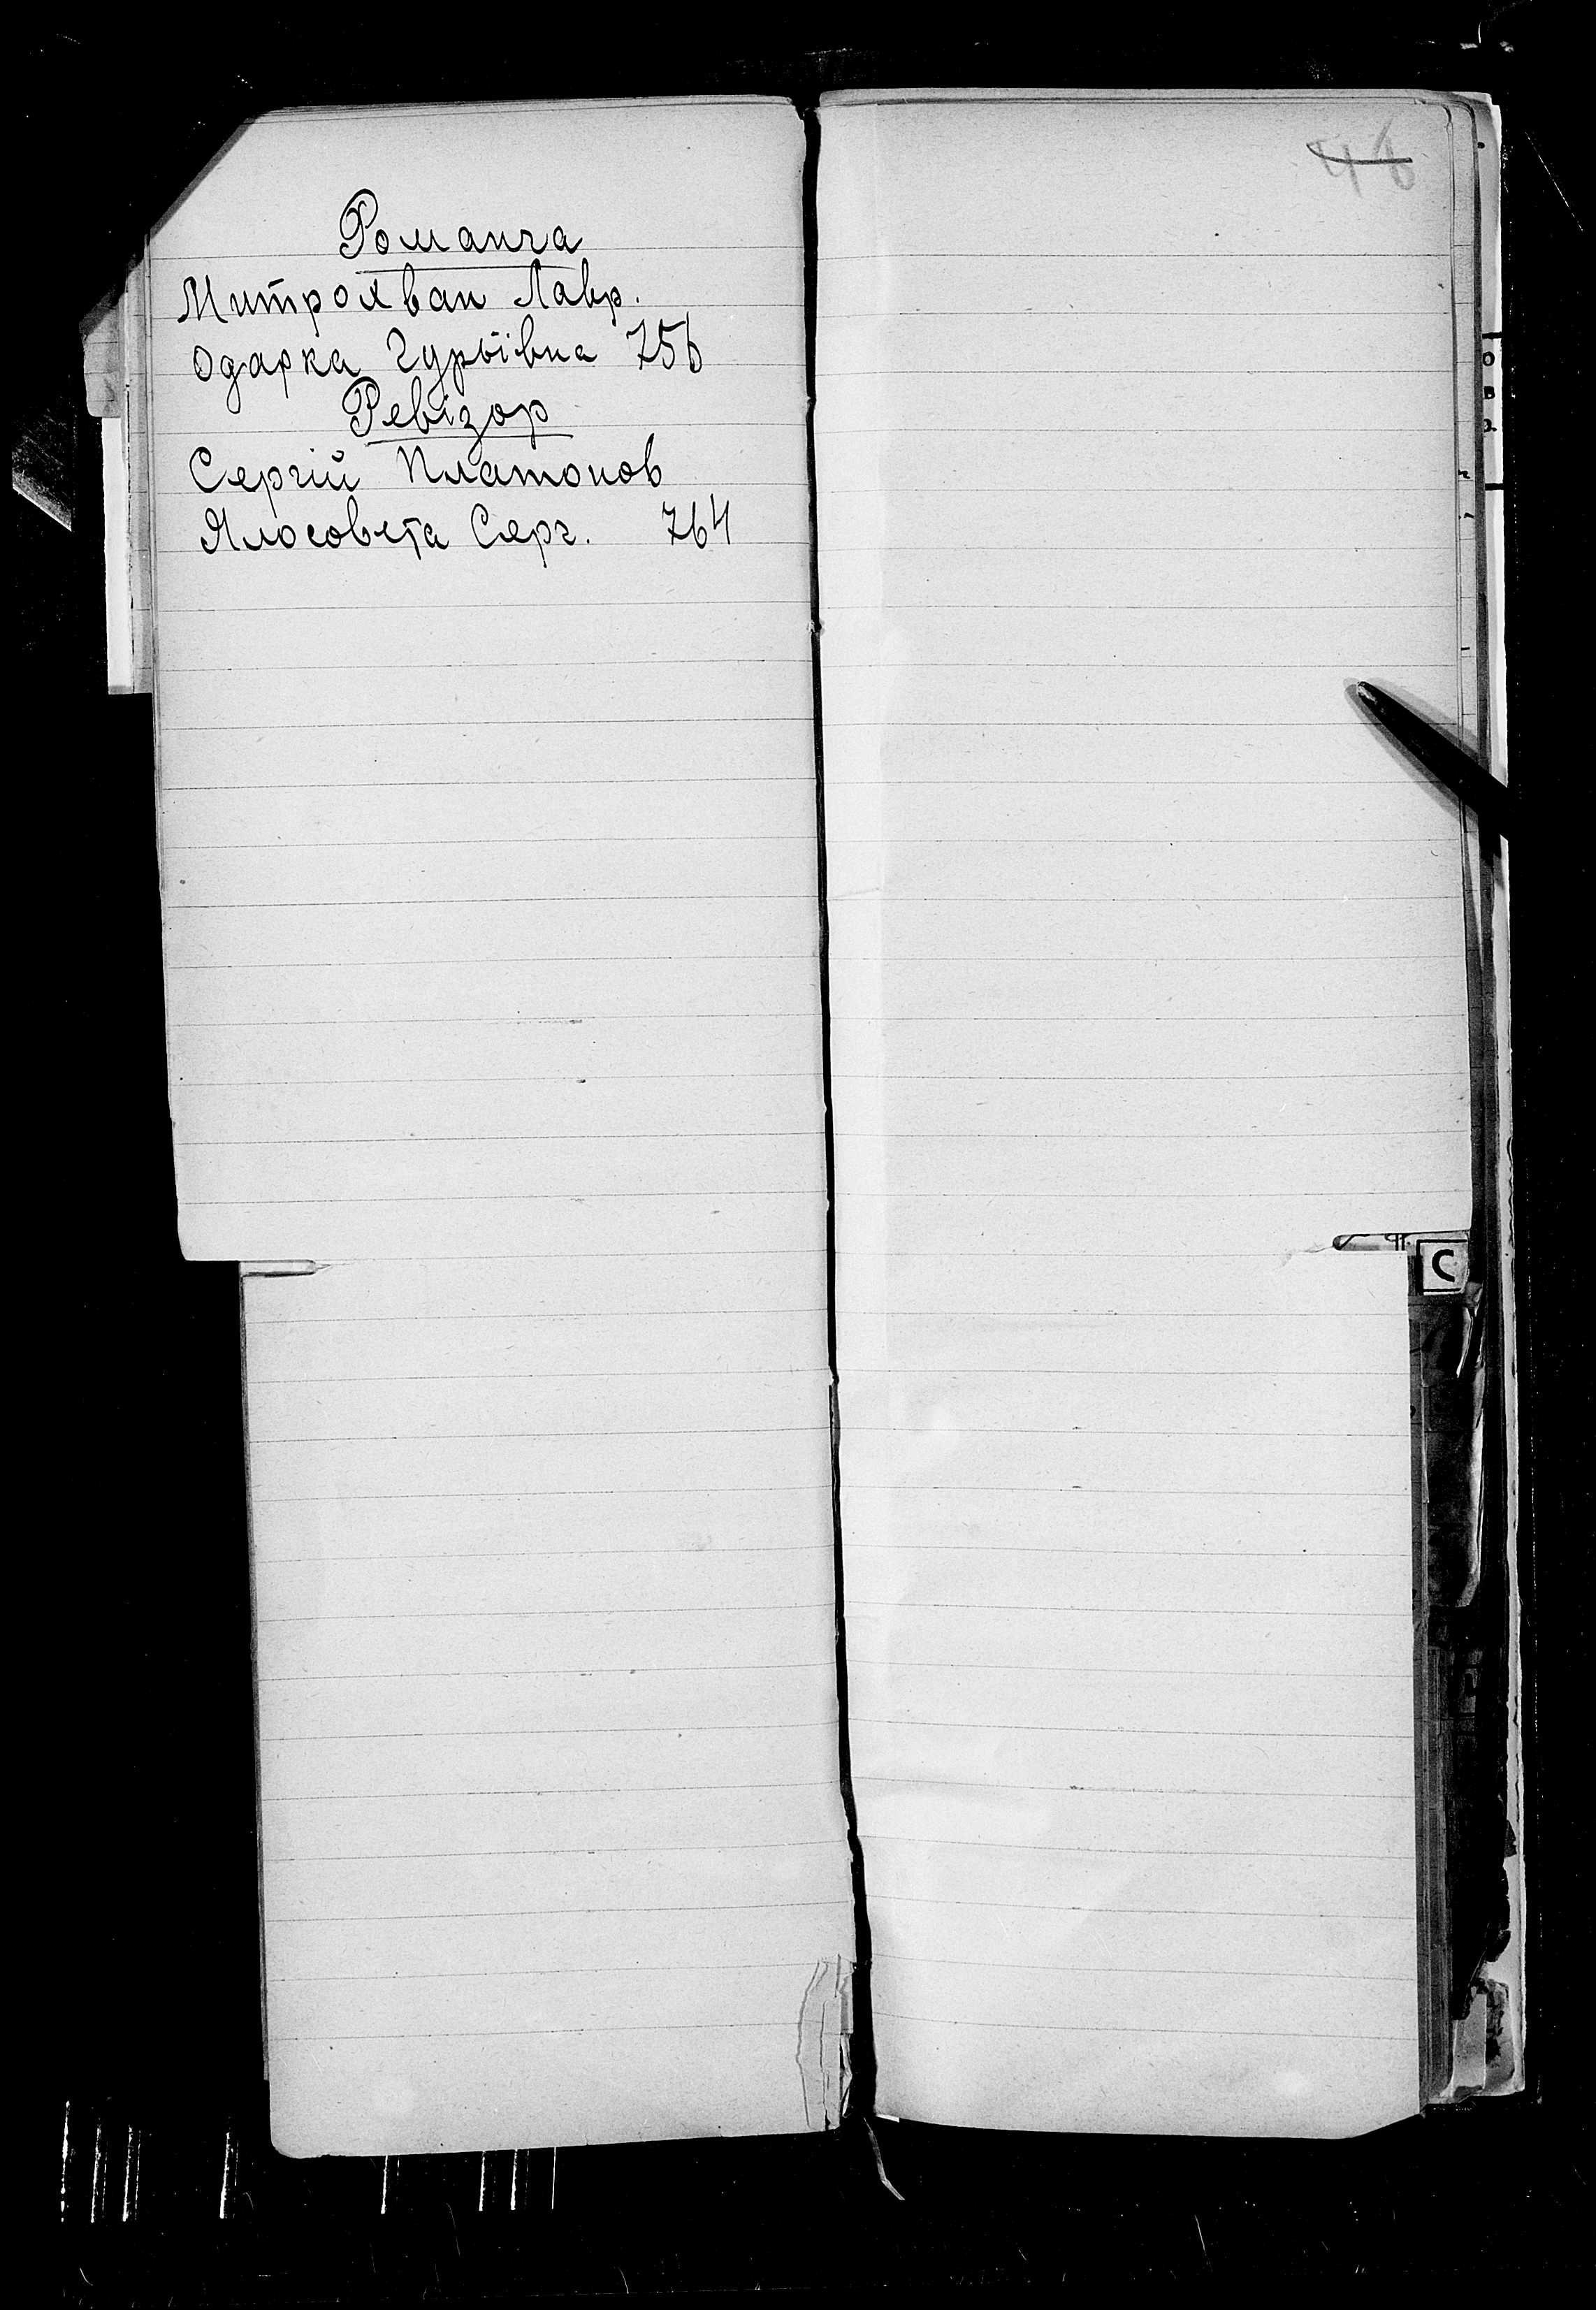 Романча
Митрохван Лавр.
Одарка Гурьївна 756
Ревізор
Сергій Платонов
Ялосовета Серг. 764
46
С